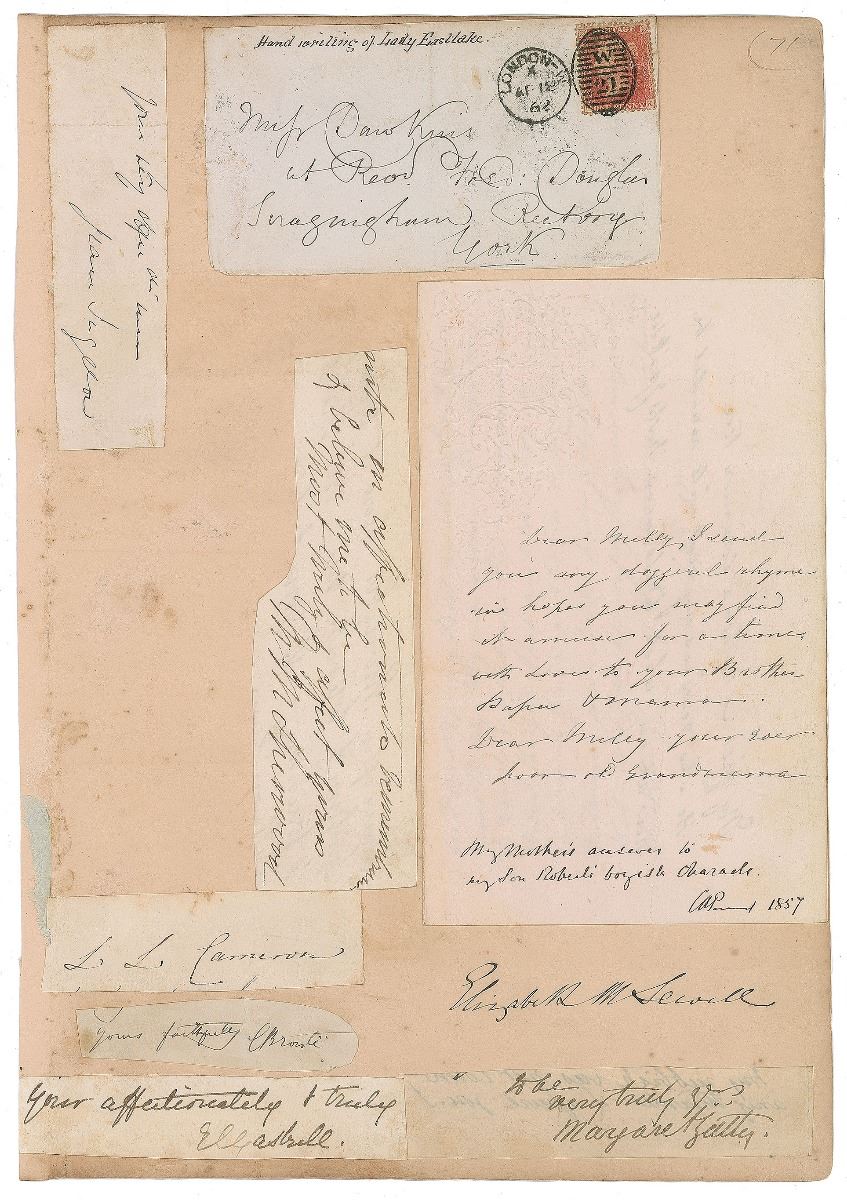 Hand writing of Lady Eastlake.
LONDON-W
4
AP 12
62
W
21
Miss Dawkins
at Revd. Douglas
Rectory
York
Yours very
Jean Ingelow
with an affectionate remembrance
& believe me to be
Most truly & affect yours
M M Sherwood
Dear Milly, I send
you my doggerel rhyme
in hopes you may find
it amuse for a time,
with Love to your Brother
Papa & mama.
Dear Milly your ever
poor old Grandmama
My Mother's answer to
my Son Robert's boyish Charade.
1857
L L Cameron
Yours faithfully CBrontë
Elizabeth M Sewell
Your affectionately & truly
E Gaskell.
to be
very truly yrs
Margaret Gatty.